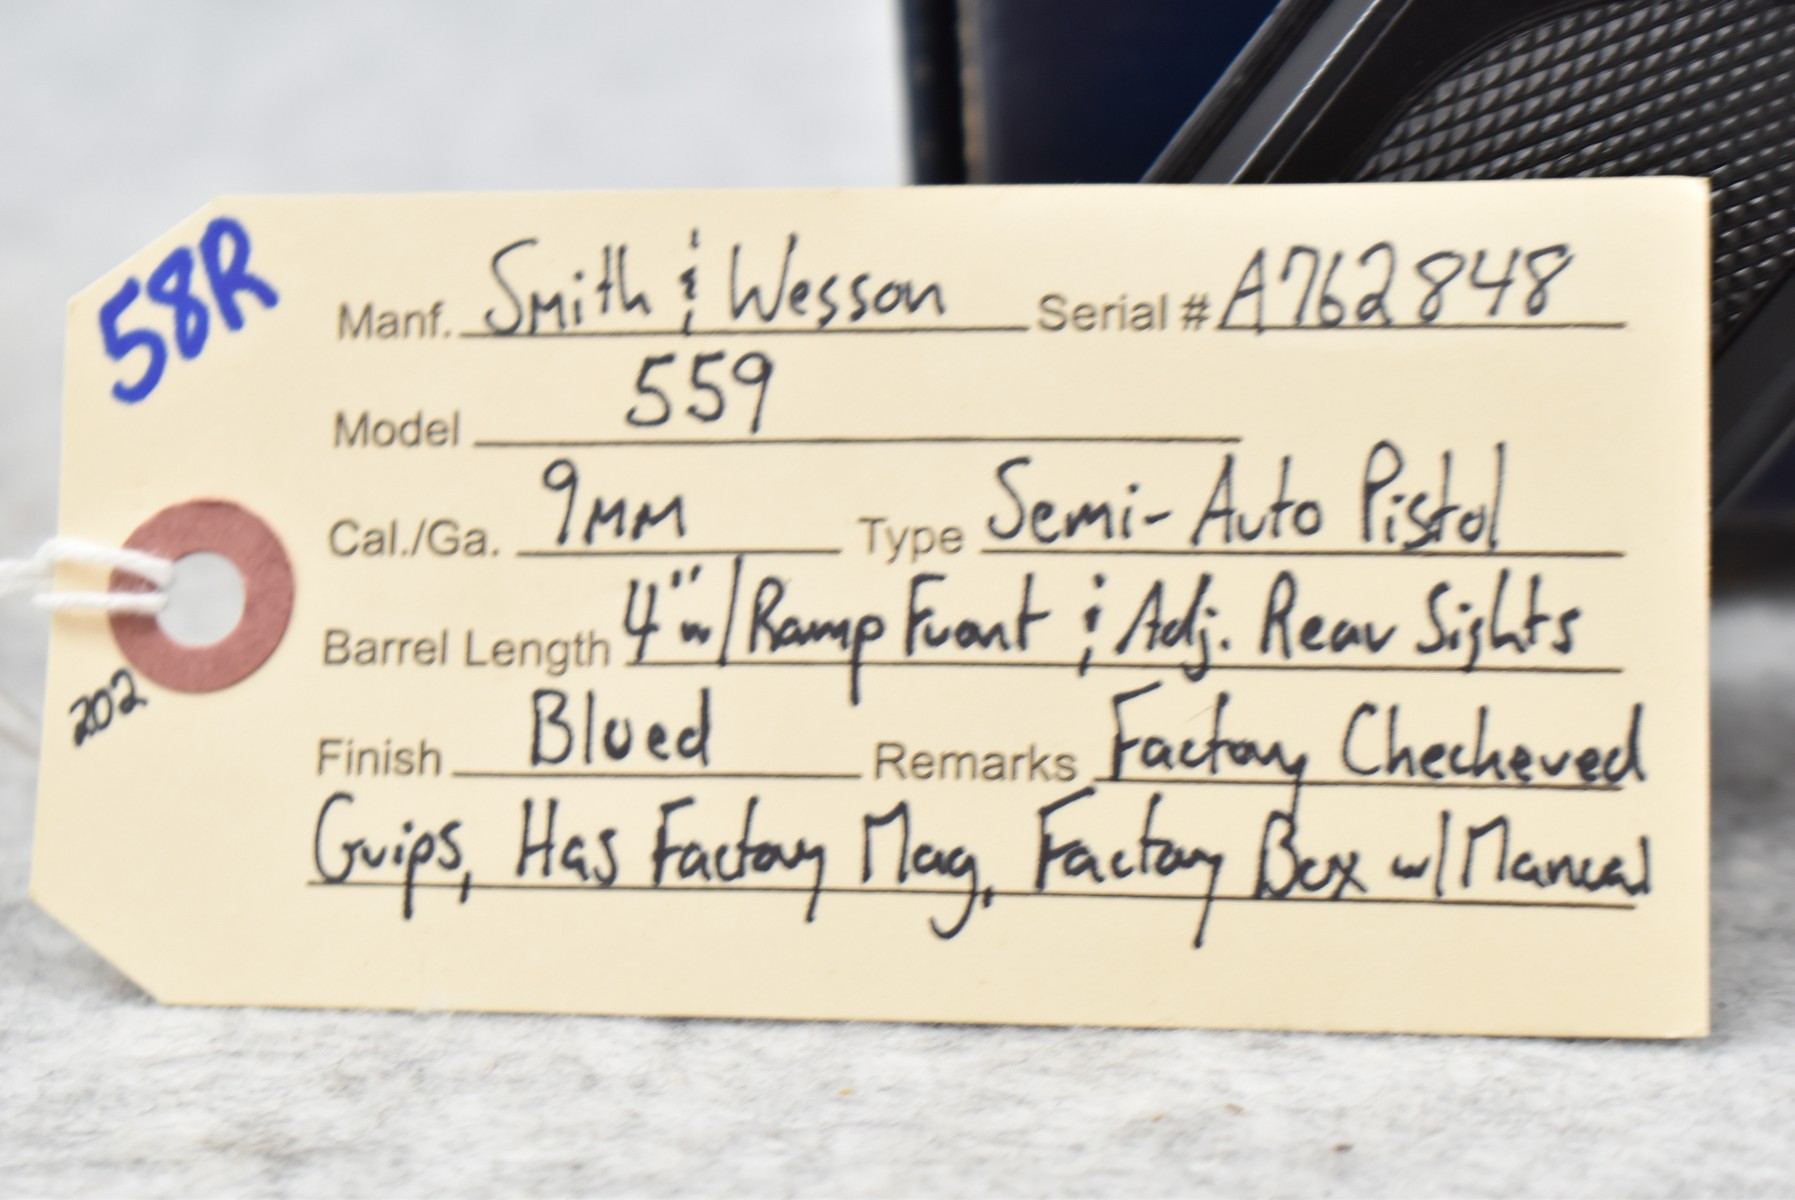 58R
Manf. Smith & Wesson Serial # A762848
Model 559
Cal./Ga. 9MM Type Semi-Auto Pistol
Barrel Length 4" w/ Ramp Front & Adj. Rear Sights
Finish Blued Remarks Factory Checkered
Grips, Has Factory Mag, Factory Box w/ Manual
202